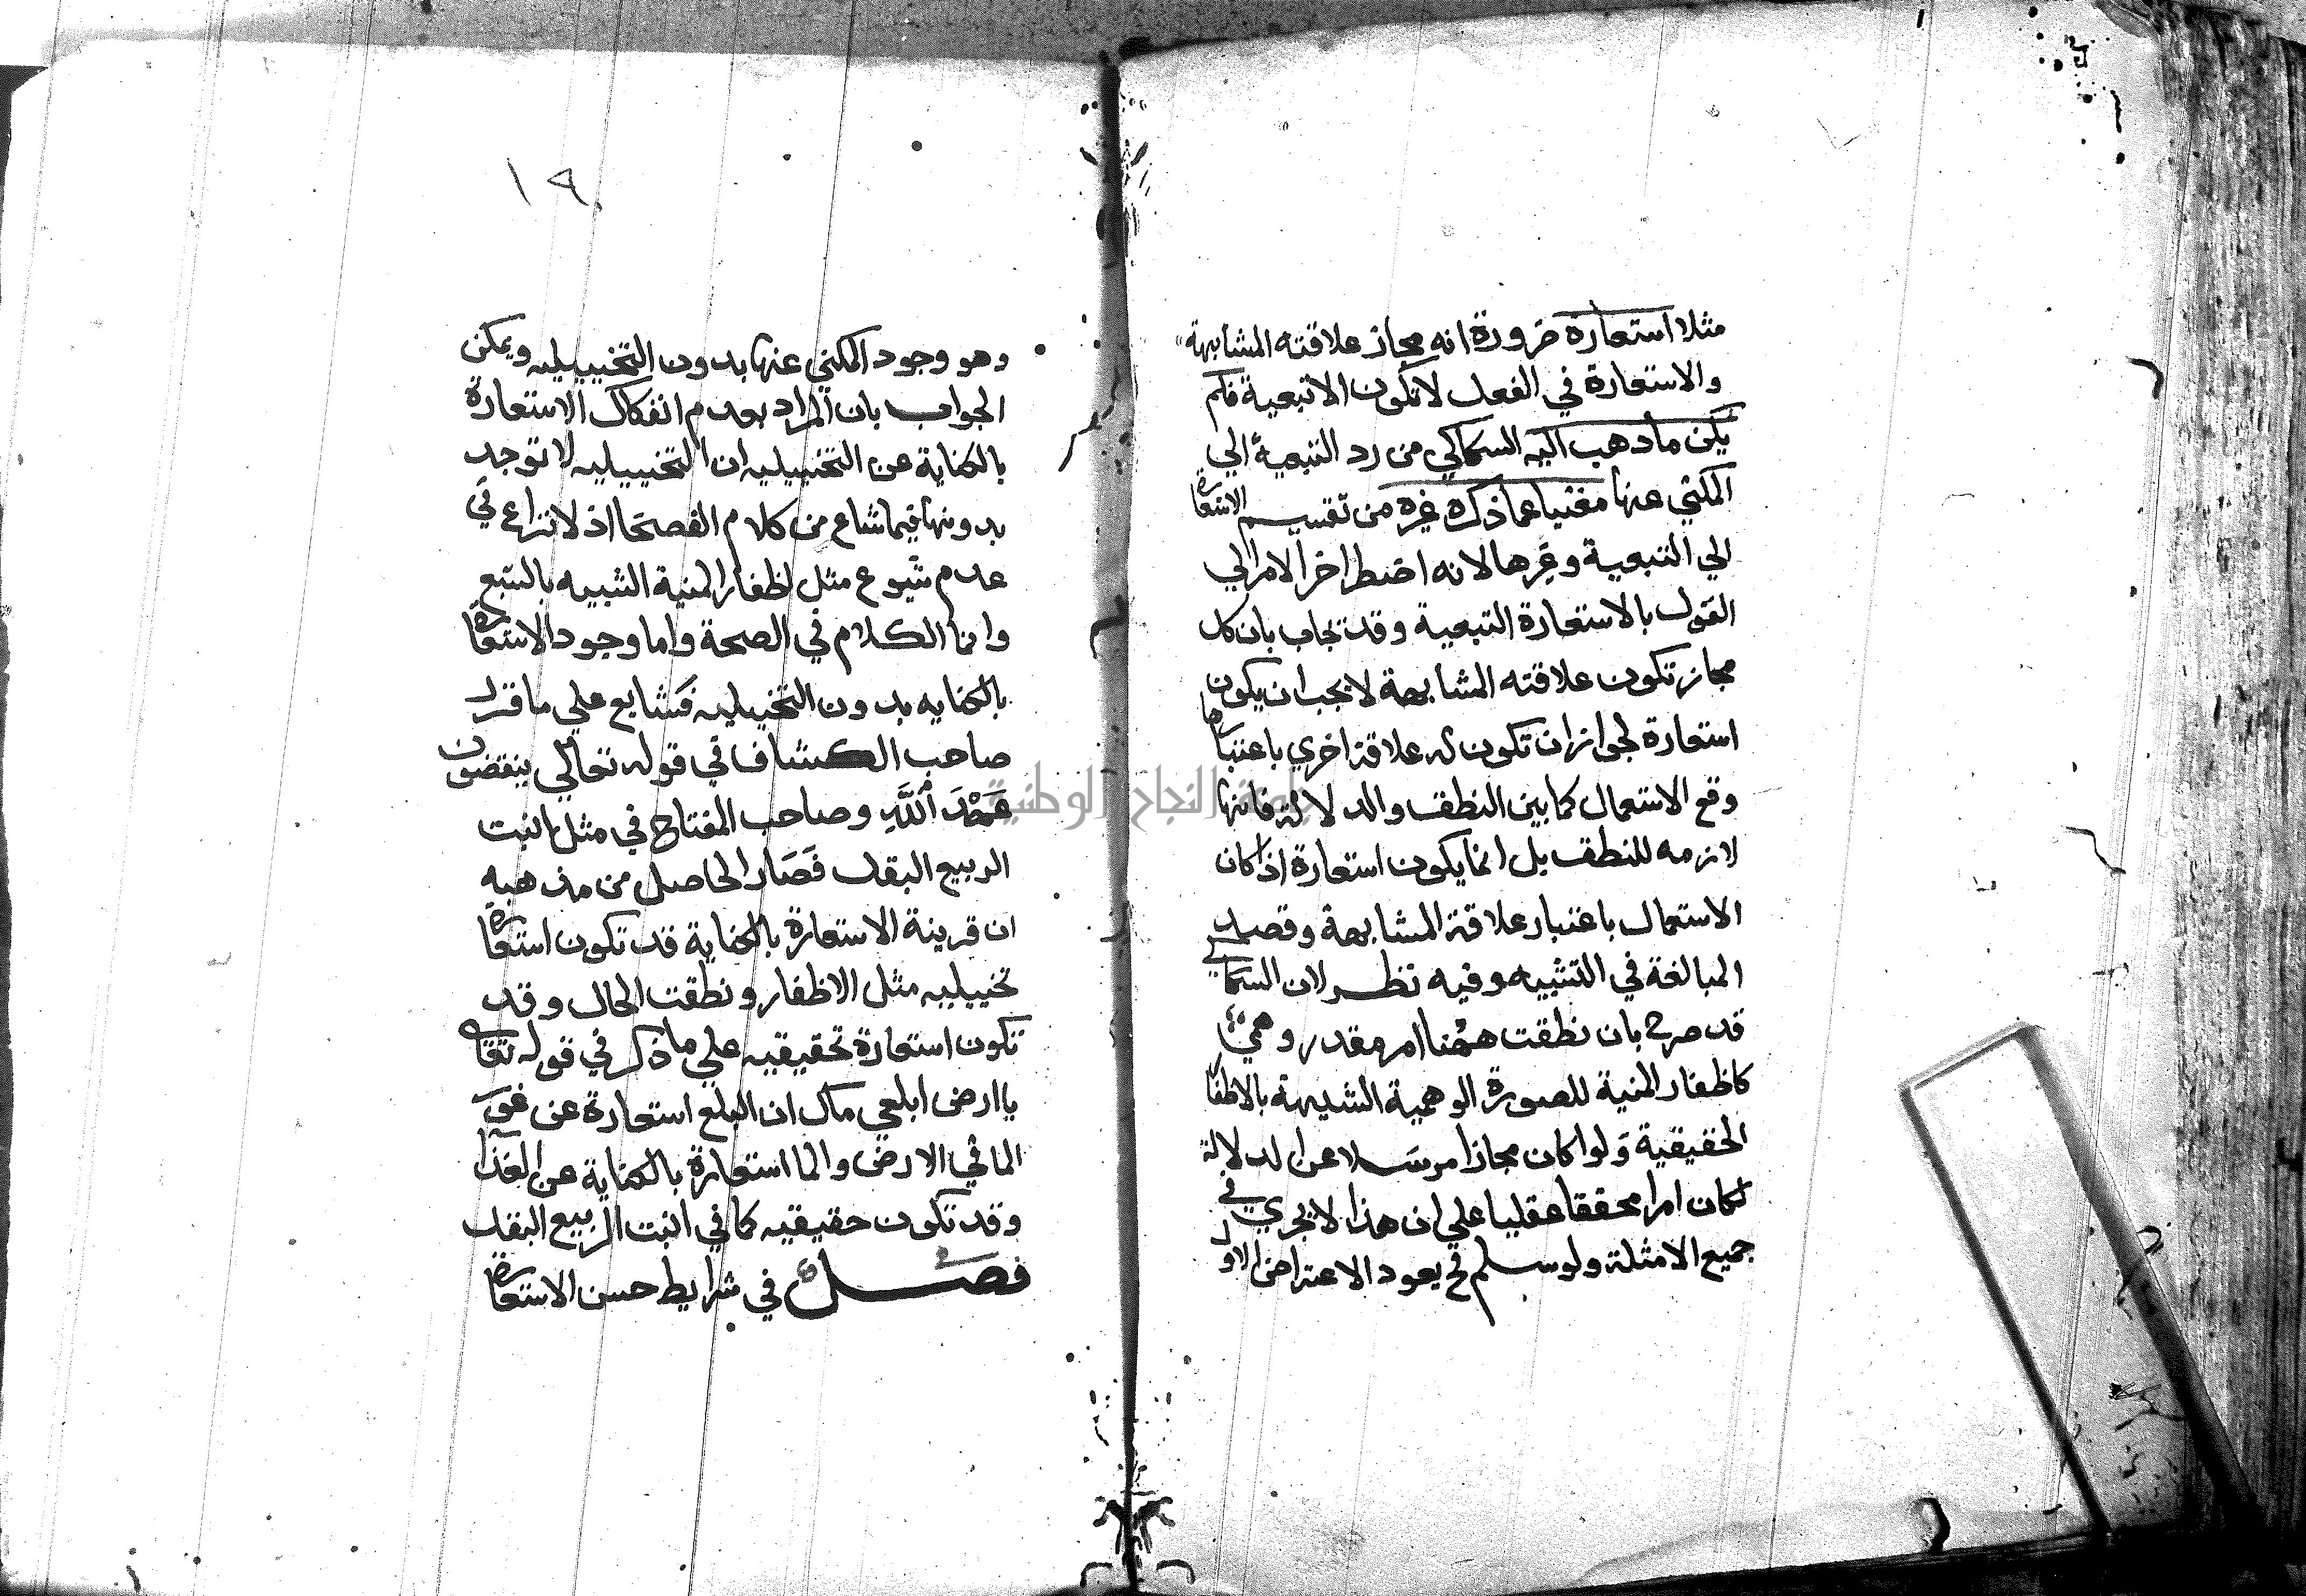 مثلا استعارة ضرورة انه مجاز علاقته المشابهة
والاستعارة في الفعل لا تكون الا تبعية فلم
يكن ما ذهب اليه السكاكي من رد التبعية الي
المكني عنها مغنيا عما ذكره غيره من تقسيم الاستعارة
الي التبعية وغيرها لانه اضطر اخر الامر الي
القول بالاستعارة التبعية وقد يجاب بان كل
مجاز تكون علاقته المشابهة لا يجب ان يكون
استعارة لجواز ان تكون له علاقة اخري باعتبارها
وقع الاستعمال كما بين النطق والدلالة فانها
لازمه للنطق بل انما يكون استعارة اذا كان
الاستعمال باعتبار علاقة المشابهة وقصد
المبالغة في التشبيه وفيه نظر لان السكاكي
قد صرح بان نطقت ههنا امر مقدر وهمي
كاظفار المنية للصورة الوهمية الشبيهة بالاظفار
الحقيقية ولو كان مجازا مرسلا عن الدلالة
لكان امرا محققا عقليا علي ان هذا لا يجري في
جميع الامثلة ولو سلم فح يعود الاعتراض الاول
١٩
وهو وجود المكني عنها بدون التخييليه ويمكن
الجواب بان المراد بعدم انفكاك الاستعارة
بالكناية عن التخييليه ان التخييليه لا توجد
بدونها فيما شاع من كلام الفصحا اذ لا نزاع في
عدم شيوع مثل اظفار المنية الشبيه بالسبع
وانما الكلام في الصحة واما وجود الاستعارة
بالكنايه بدون التخييليه فشايع علي ما قرر
صاحب الكشاف في قوله تعالي ينقضون
عَهْدَ اللَّهِ وصاحب المفتاح في مثل انبت
الربيع البقل فصار الحاصل من مذهبه
ان قرينة الاستعارة بالكناية قد تكون استعارة
تخييليه مثل الاظفار ونطقت الحال وقد
تكون استعارة تحقيقيه علي ما ذكر في قوله تعالي
يا ارض ابلعي ماك ان البلع استعارة عن غور
الما في الارض والما استعارة بالكناية عن الغذا
وقد تكون حقيقيه كما في انبت الربيع البقل
فصل في شرايط حسن الاستعارة
جامعة النجاح الوطنية